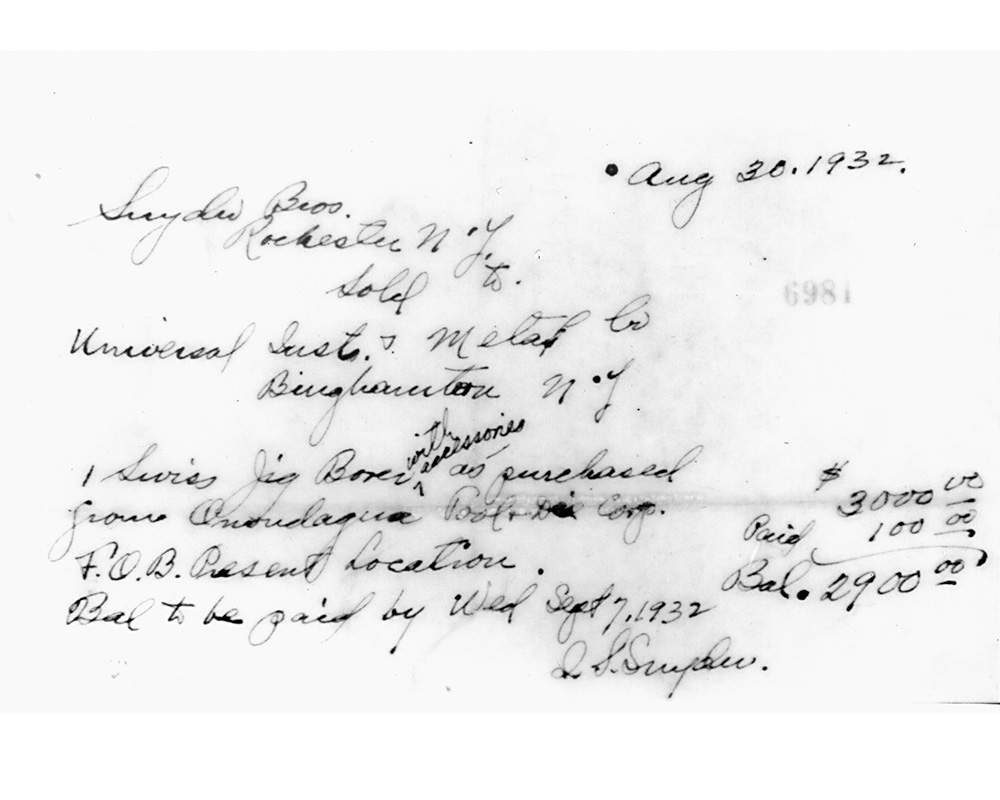 Aug 30. 1932.
Snyder Bros.
Rochester N.Y.
Sold to.
6981
Universal Inst. & Metal Co
Binghamton N.Y
with accessories
1 Swiss Jig Borer as purchased
from Onondagua Tool & Die Corp.
$ 3000 00
Paid 100 00
F.O.B. Present Location.
Bal. 2900 00
Bal to be paid by Wed Sept 7, 1932
S. Snyder.